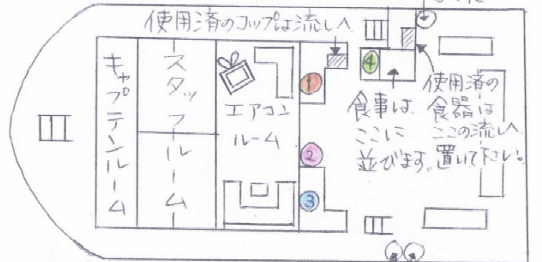 使用済のコップは流しへ
キャプテンルーム
スタッフルーム
エアコン
ルーム
①
②
③
④
食事は
ここに
並びます。
使用済の
食器は
ここの流しへ
置いて下さい。